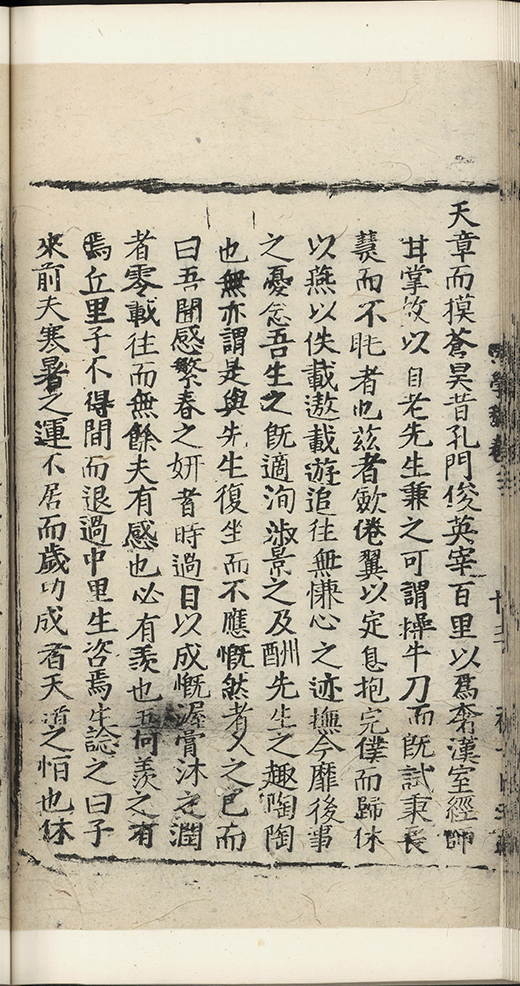 天章而摸蒼昊昔孔門俊英宰百里以爲奢漢室經師
甘掌故以自老先生兼之可謂捭牛刀而旣試秉長
而不眊者也茲者歛倦翼以定息抱完僕而歸休
以燕以佚載遨載遊追往無慊心之迹撫今靡後事
之憂念吾生之旣適洵淑景之及酬先生之趣陶陶
也無亦謂是與先生復坐而不應慨然者久之已而
曰吾聞感繁春之妍者時過目以成慨渥膏沐之潤
者零載往而無餘夫有感也必有羨也吾何羨之有
焉丘里子不得間而退過中里生咨焉生諗之曰子
來前夫寒暑之運不居而歲功成者天道之恒也休